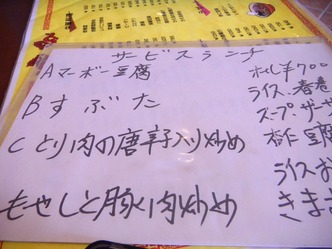 サービスランチ
Aマーボー豆腐
Bすぶた
Cとり肉の唐辛子入り炒め
もやしと豚肉炒め
ライス、春巻
スープ、ザー
杏仁豆腐
ライスお
きま